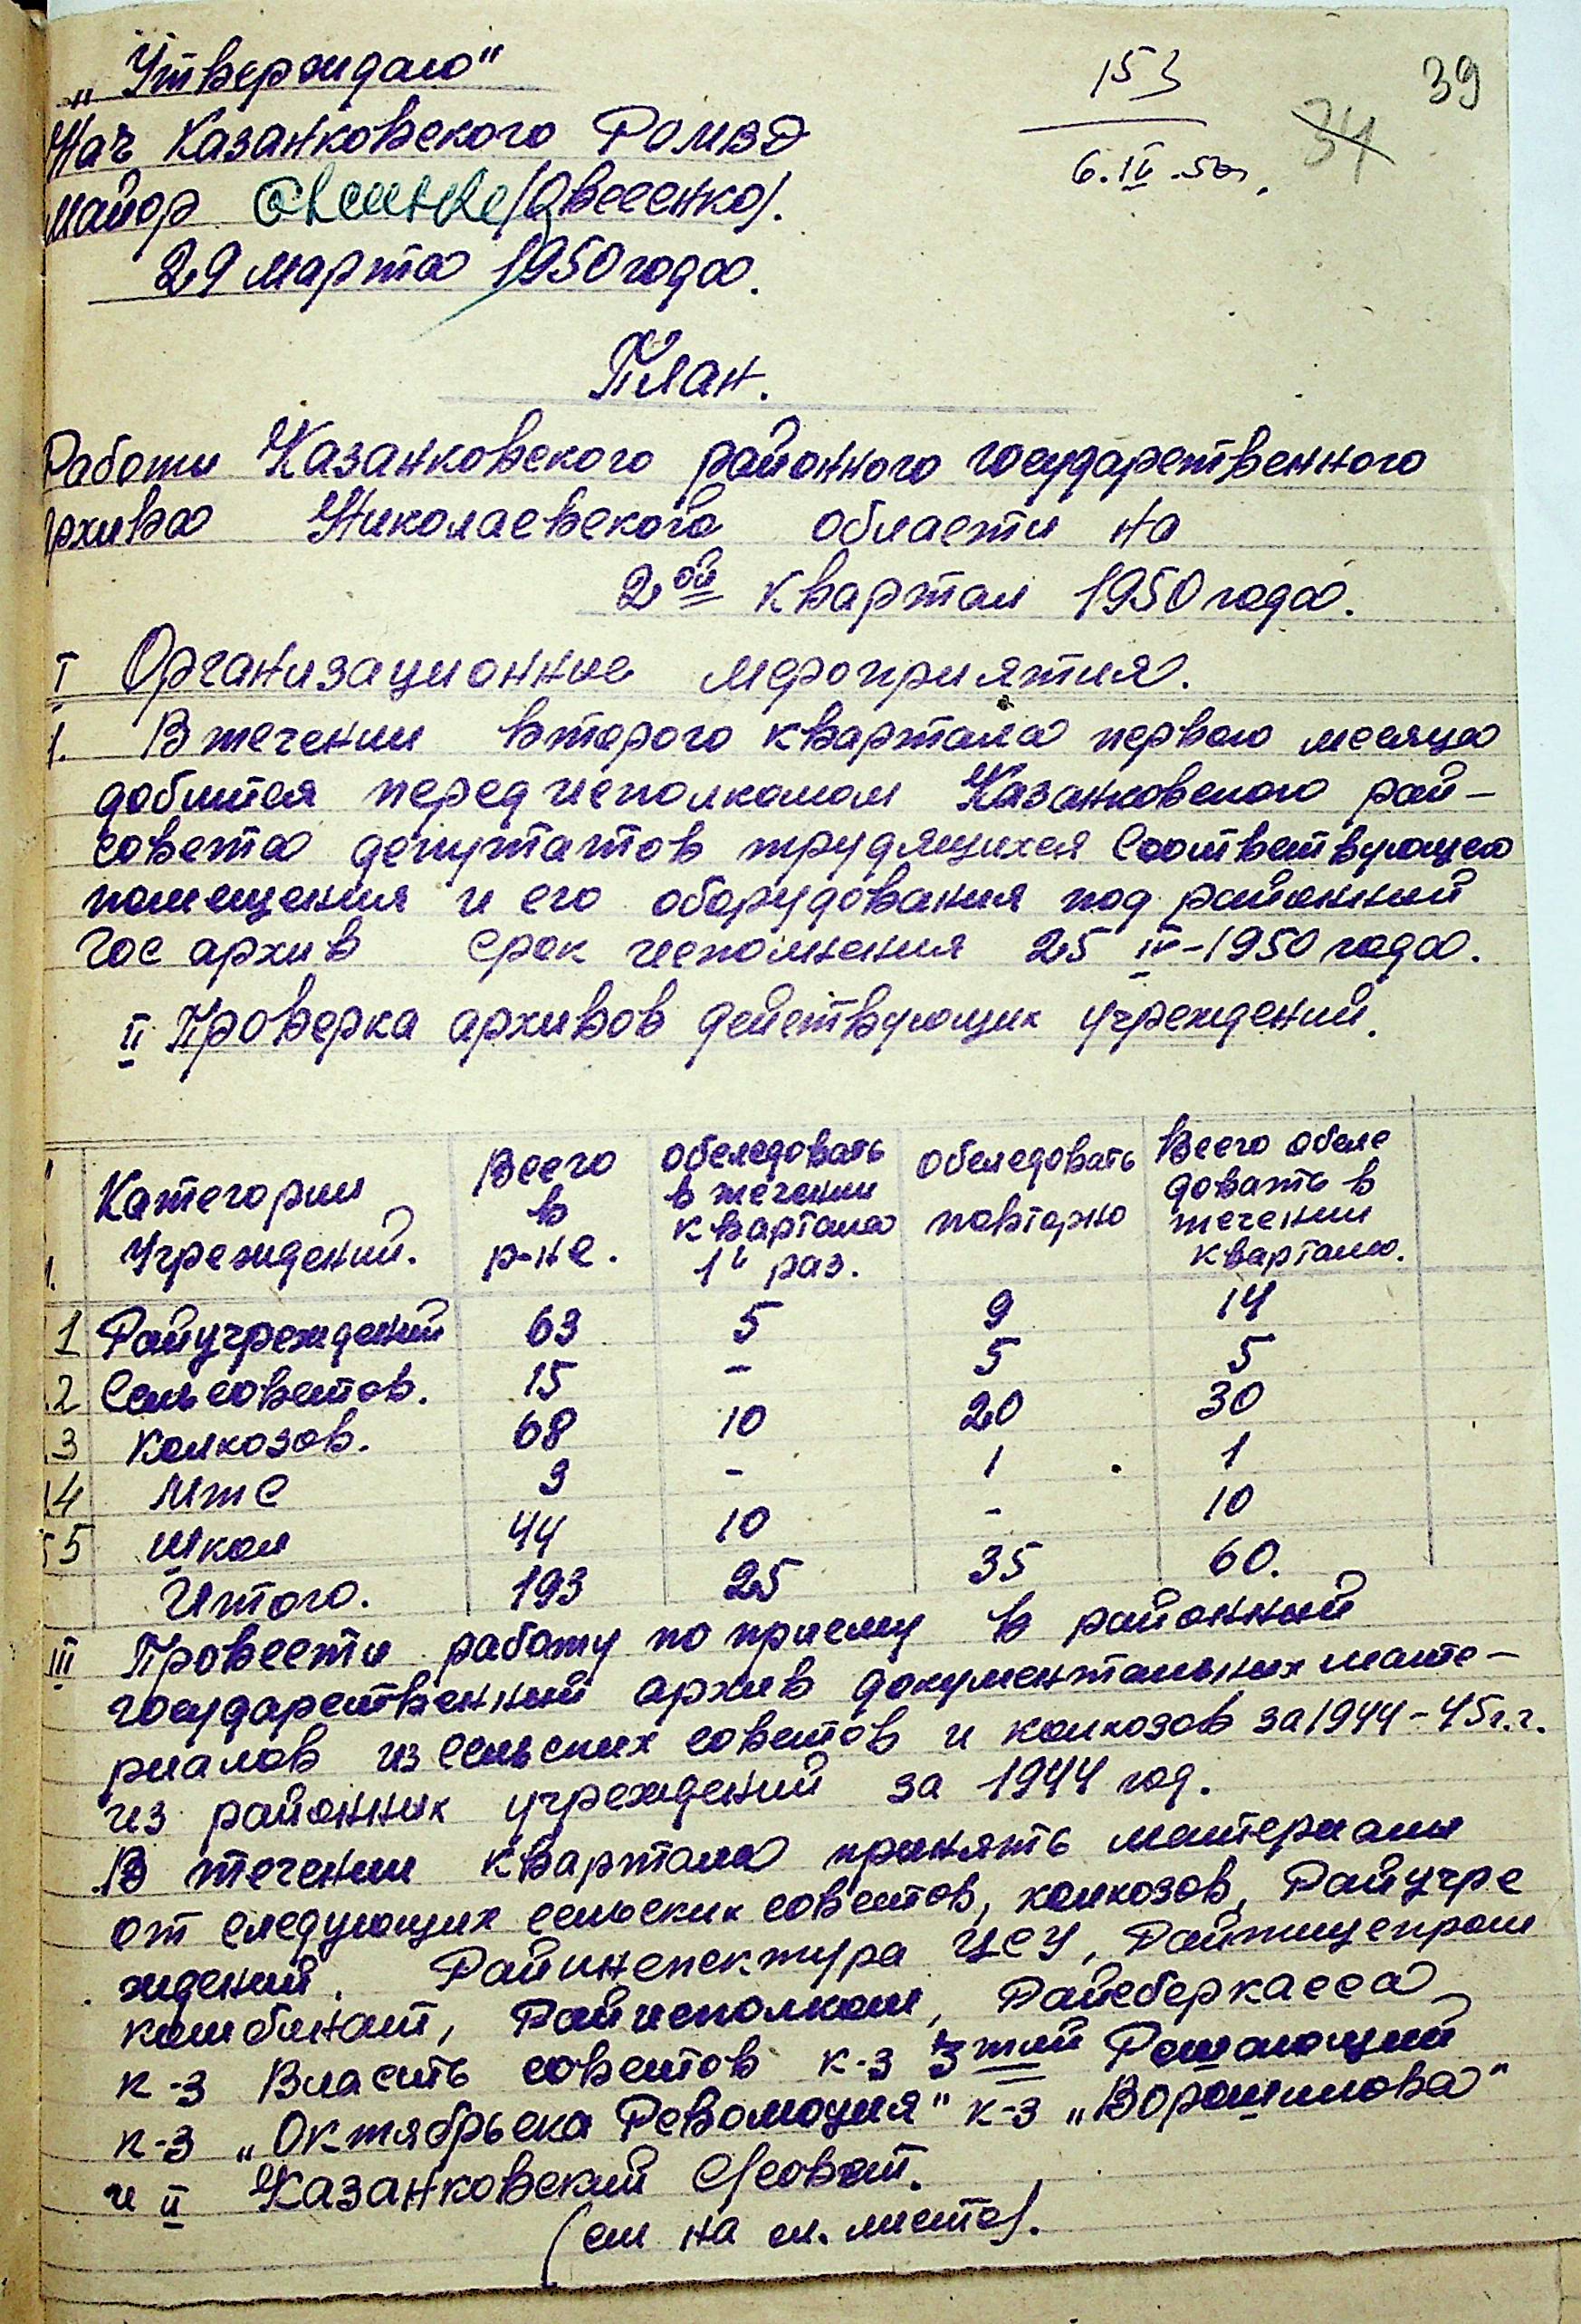 „Утверждаю"
153
39
34
Нач Казанковского РОМВД
6.IV.50г.
майор (Овсеенко).
29 марта 1950 года.
План.
Работи Казанковского районного государственного
архива Николаевского области на
2ой квартал 1950 года.
I Организационние мероприятия.
1. В течении второго квартала первого месяца
добится перед исполкомом Казанковского рай-
совета депутатов трудящихся соответвующего
помещения и его оборудования под районный
Гос архив срок исполнения 25 IV-1950 года.
II Проверка архивов действующих учреждений.
Категории Учреждений. | Всего в р-не. | обследовать в течении квартала 1й раз. | обследовать повторно | Всего обсле довать в течении квартала.
1 Райучреждений 63 5 9 14
2 Сельсоветов. 15 - 5 5
3 Колхозов. 68 10 20 30
4 Мтс 3 - 1 1
5 Школ 44 10 - 10
Итого. 193 25 35 60.
III Провести работу по приему в районный
государственный архив документальних мате-
риалов из сельских советов и колхозов за 1944-45г.г.
из районних учреждений за 1944 год.
В течении квартала принять материали
от следующих сельских советов, колхозов, Райучре
ждений. Райинспектура ЦСУ, Райпищепром
комбинат, Райисполком, Райсберкасса
к-з Власть советов к-з 3тий Решающий
к-з „Октябрьска Революция" к-з „Ворошилова"
и II Казанковский С/совет.
(см на сл. листе).